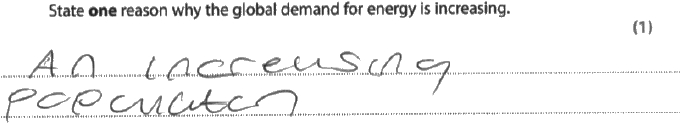 State one reason why the global demand for energy is increasing.
(1)
An increasing
population